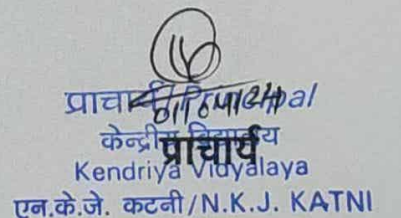 प्राचार्य/Principal
केन्द्रीय विद्यालय
प्राचार्य
Kendriya Vidyalaya
एन.के.जे. कटनी/N.K.J. KATNI